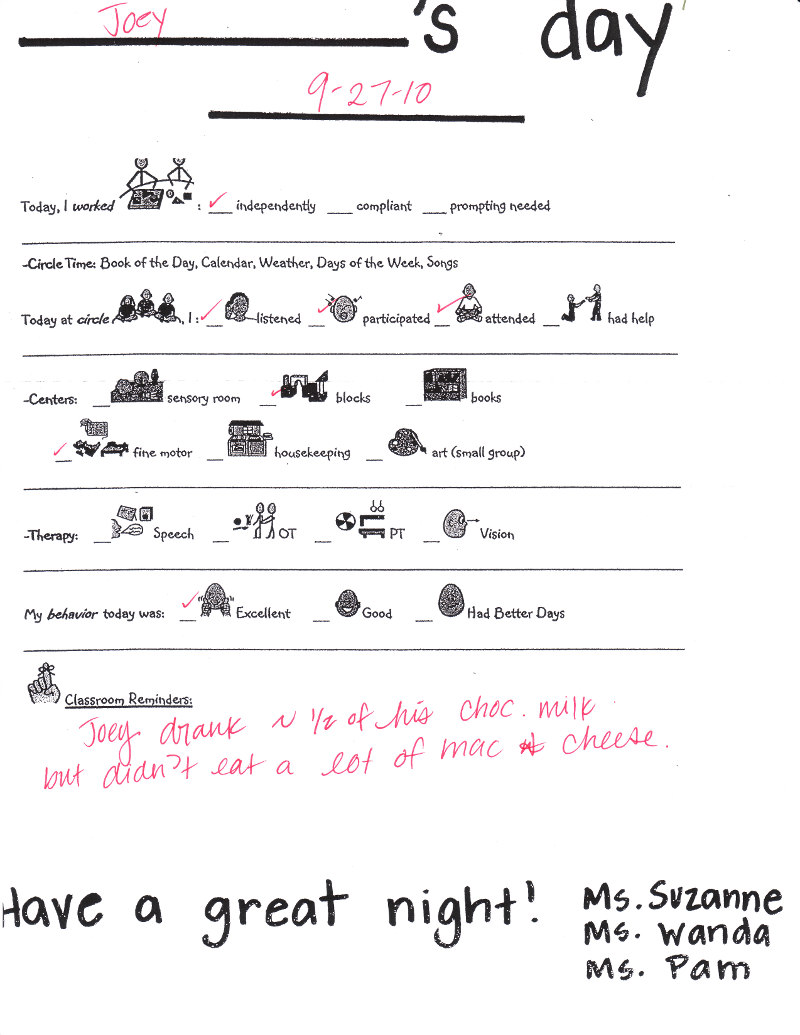 Joey 's day
9-27-10
Today, I worked : ✓ independently __ compliant __ prompting needed
-Circle Time: Book of the Day, Calendar, Weather, Days of the Week, Songs
Today at circle, I: ✓ listened ✓ participated ✓ attended __ had help
-Centers: __ sensory room ✓ blocks __ books
✓ fine motor __ housekeeping __ art (small group)
-Therapy: __ Speech __ OT __ PT __ Vision
My behavior today was: ✓ Excellent __ Good __ Had Better Days
Classroom Reminders:
Joey drank ~ 1/2 of his choc. milk
but didn't eat a lot of mac & cheese.
Have a great night! Ms. Suzanne
Ms. Wanda
Ms. Pam